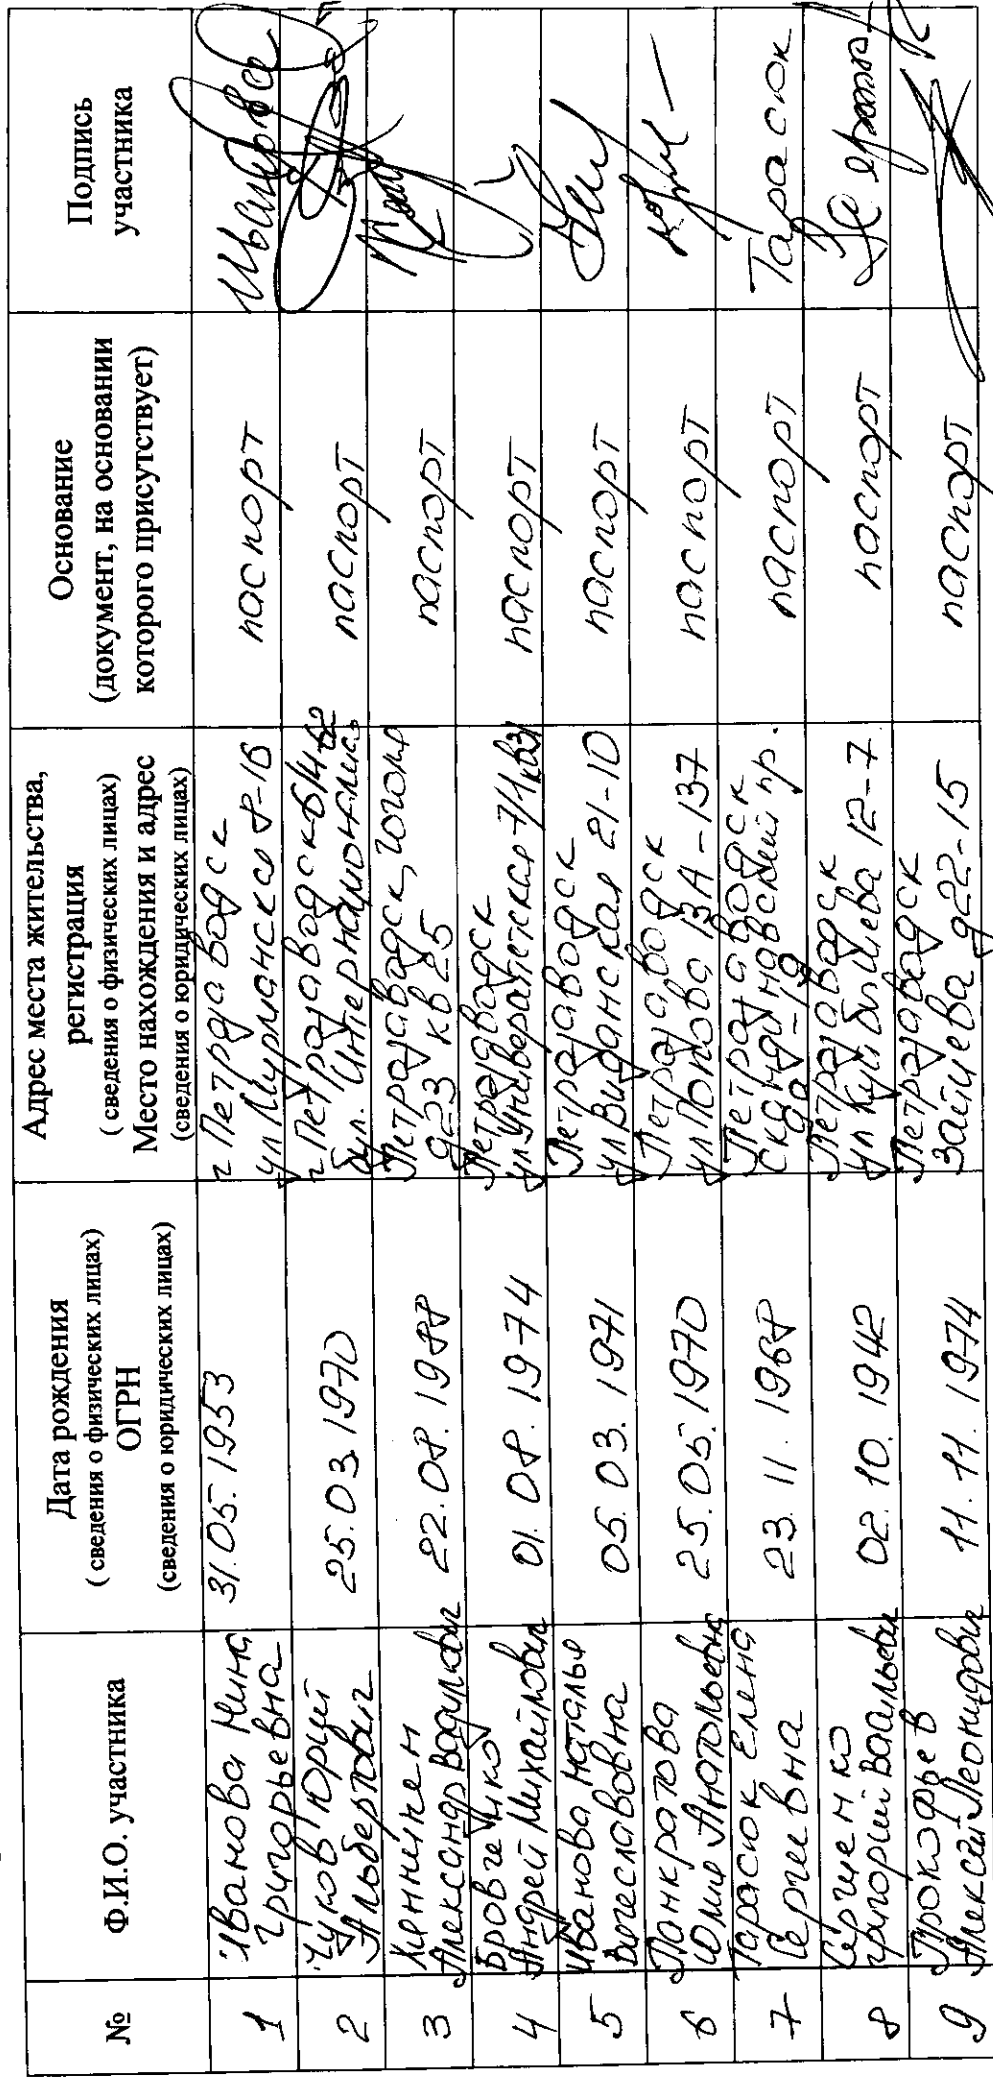 №
Ф.И.О. участника
Дата рождения
( сведения о физических лицах)
ОГРН
(сведения о юридических лицах)
Адрес места жительства,
регистрация
( сведения о физических лицах)
Место нахождения и адрес
(сведения о юридических лицах)
Основание
(документ, на основании
которого присутствует)
Подпись
участника
1
Иванова Нина
Григорьевна
31.05.1953
г Петрозаводск
ул Мурманская 8-16
паспорт
Иванова
2
Чуков Юрий
Альбертович
25.03.1970
г Петрозаводск
бул. Интернационалистов
паспорт
3
Хеннинен
Александр Вадимович
22.08.1988
Петрозаводск, Гоголя
д23 кв 25
паспорт
4
Бровченко
Андрей Михайлович
01.08.1974
Петрозаводск
ул Университетская 7/1
паспорт
5
Иванова Наталья
Вячеславовна
05.03.1971
Петрозаводск
ул Виданская 21-10
паспорт
6
Панкратова
Юлия Анатольевна
25.05.1970
Петрозаводск
ул Попова 13А-137
паспорт
7
Тарасюк Елена
Сергеевна
23.11.1968
Петрозаводск
Скандинавский пр.
паспорт
Тарасюк
8
Сергиенко
Григорий Васильевич
02.10.1942
Петрозаводск
ул Куйбышева 12-7
паспорт
9
Прокофьев
Алексей Леонидович
11.11.1974
Петрозаводск
Зайцева д22-15
паспорт